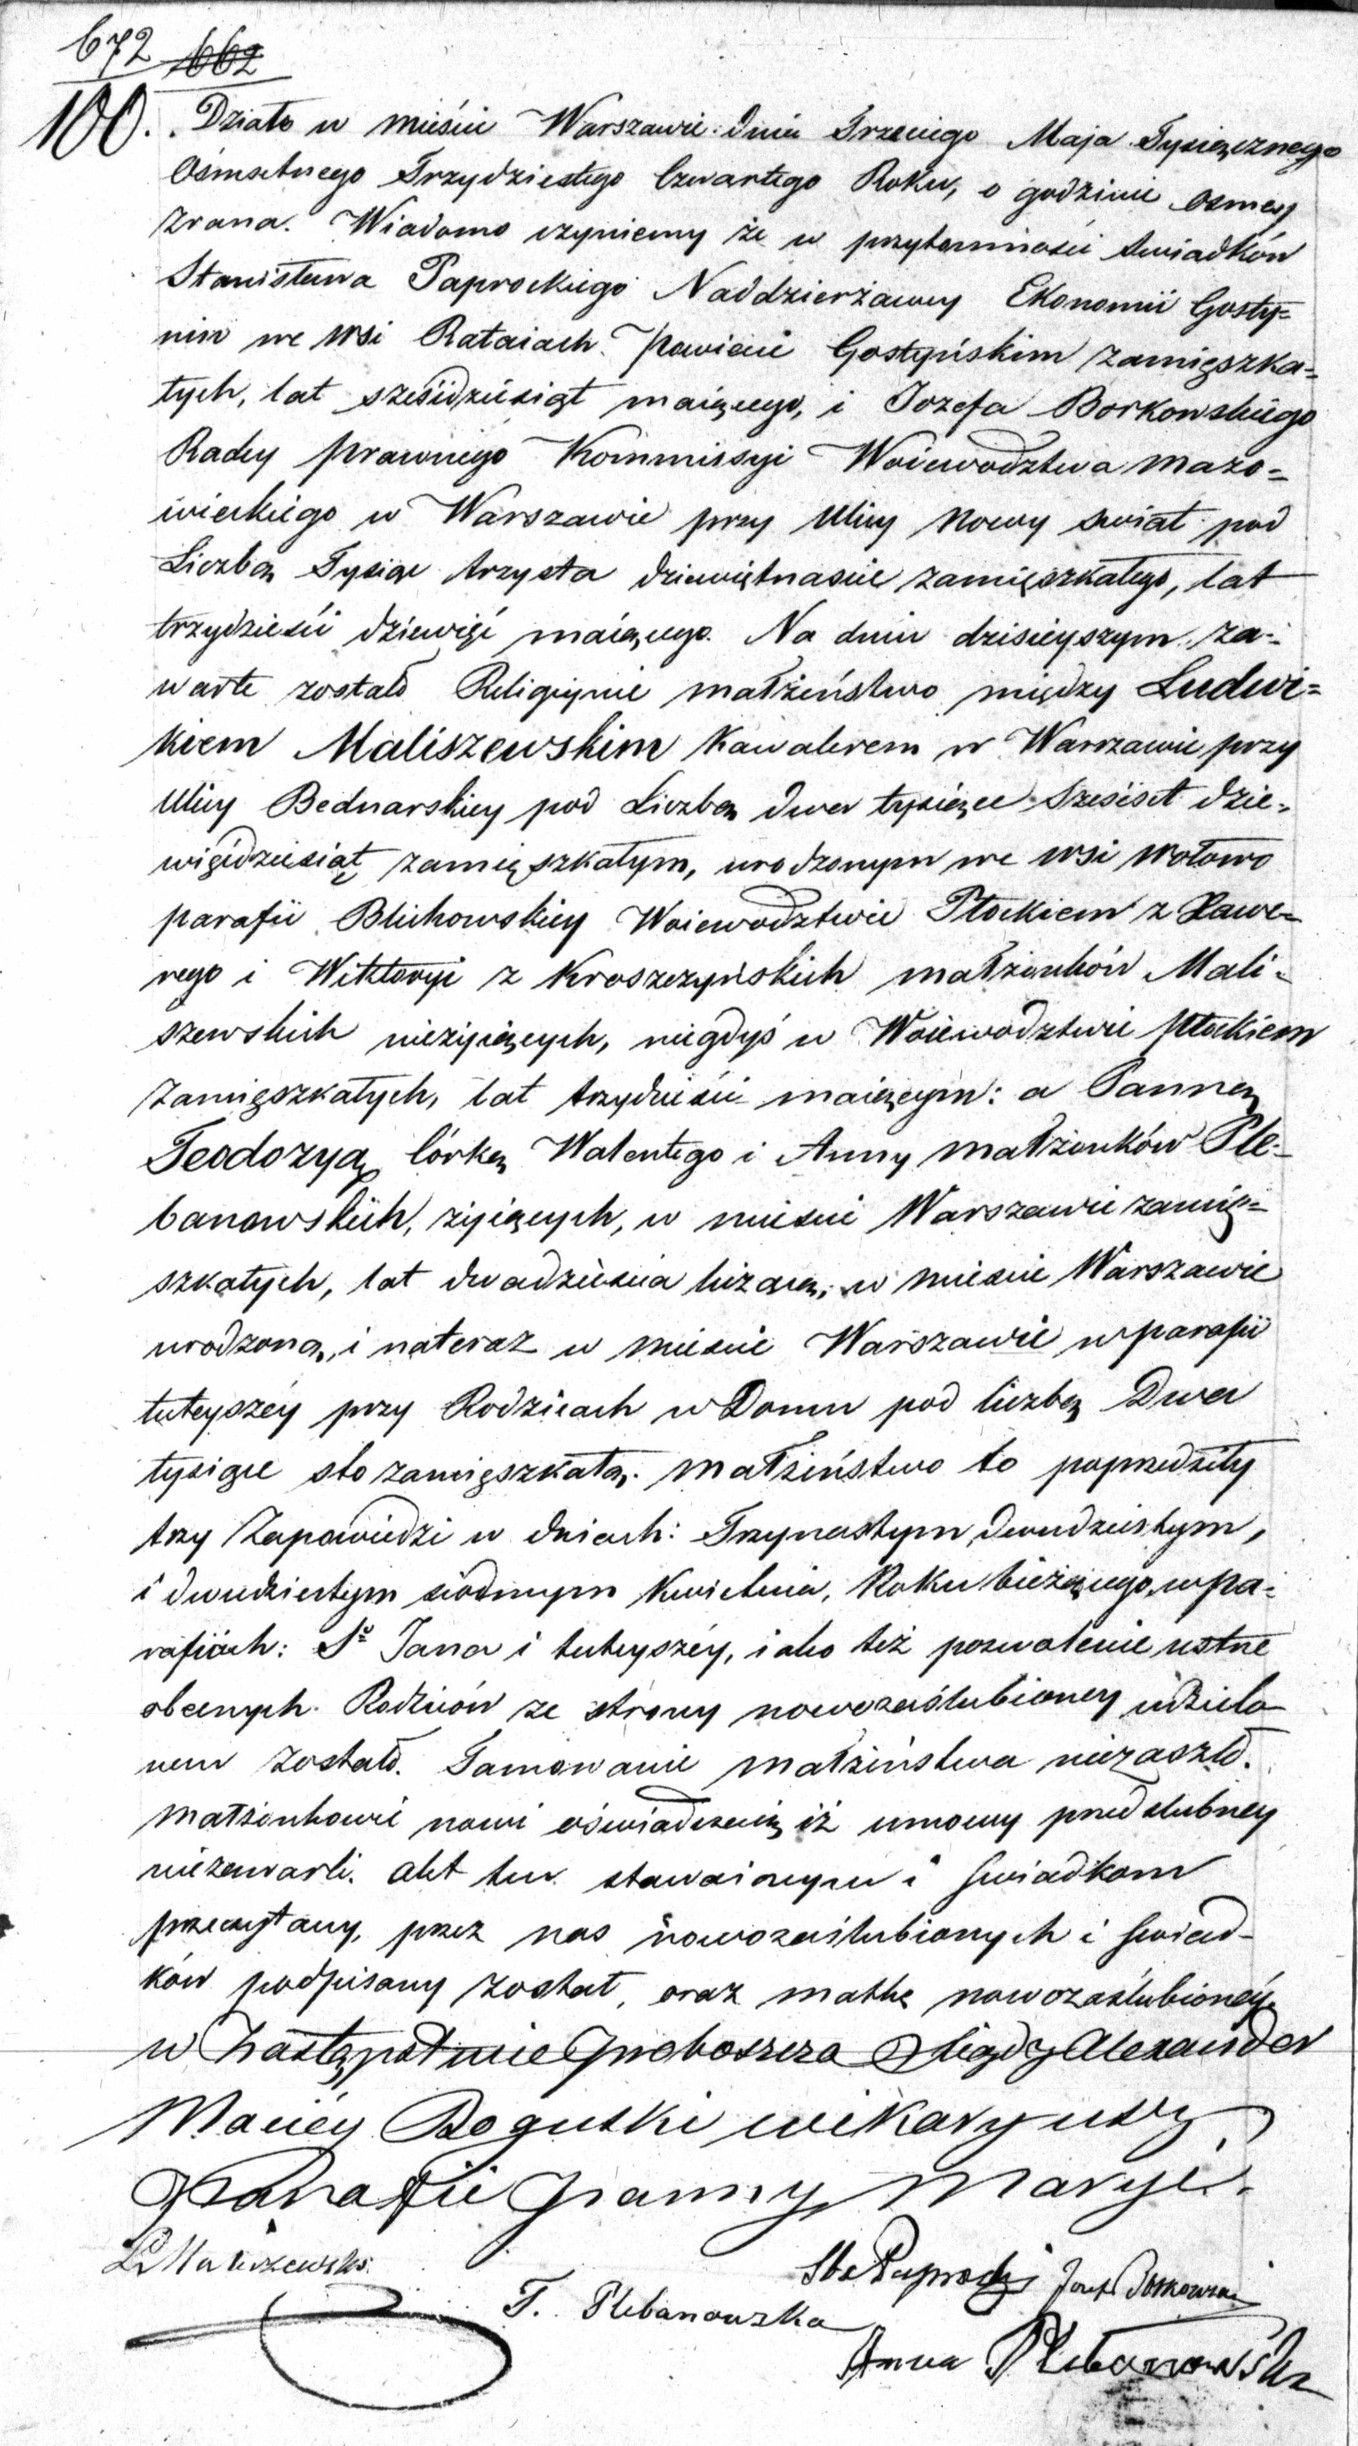 672 662
100. Działo w mieście Warszawie dnia Trzeciego Maja Tysiącznego
Ośmsetnego Trzydziestego Czwartego Roku, o godzinie osmey
zrana. Wiadomo czyniemy że w przytomności świadków
Stanisława Paprockiego Naddzierżawcy Ekonomii Gosty=
nin we wsi Rataiach powiecie Gostyńskim zamięszka=
łych, lat sześćdziesiąt maiącego, i Jozefa Borkowskiego
Radcy prawnego Kommissyi Woiewodztwa mazo=
wieckiego w Warszawie przy Ulicy nowy swiat pod
Liczbą Tysiąc trzysta dziewiętnaście zamięszkałego, lat
trzydzieści dziewięć maiącego. Na dniu dzisieyszym za-
warte zostało Religiynie małżeństwo między Ludwi=
kiem Maliszewskim Kawalerem w Warszawie przy
Ulicy Bednarskiey pod Liczbą dwa tysiące sześćset dzie-
więćdziesiąt zamięszkałym, urodzonym we wsi Wołowo
parafii Blichowskiey Woiewodztwie Płockiem z Xawe-
rego i Wiktoryi z Kroszczyńskich małżonków Mali-
szewskich nieżyiących, niegdyś w Woiewodztwie płockiem
zamięszkałych, lat trzydzieści maiącym: a Panną
Teodozyą, córką Walentego i Anny małżonków Ple-
banowskich, żyiących, w mieście Warszawie zamię=
szkałych, lat dwadzieścia liczącą, w mieście Warszawie
urodzoną, i nateraz w mieście Warszawie w parafii
tuteyszéy przy Rodzicach w Domu pod liczbą Dwa
tysiące sto zamięszkałą. małżeństwo to poprzedziły
trzy Zapowiedzi w dniach: Trzynastym, dwudziestym,
i dwudziestym siódmym Kwietnia, Roku bieżącego, w pa-
rafiach: Sº Jana i tuteyszéy, iako też pozwolenie ustne
obecnych Rodziców ze strony nowozaślubioney udzielo
nem zostało. Tamowanie małżeństwa niezaszło.
małżonkowie nowi oświadczaią iż umowy przedślubney
niezawarli. Akt ten stawaiącym i świadkom
przeczytany, przez nas nowozaślubionych i świad-
ków podpisany został, oraz matkę nowozaślubionéy.
w Zastępstwie Proboszcza Xiądz Alexander
Maciéy Boguski wikaryusz
Parafii Panny Maryi.
L Maliszewski
Sta Paprocki Jozef Borkowski
T. Plebanowska
Anna Plebanowska